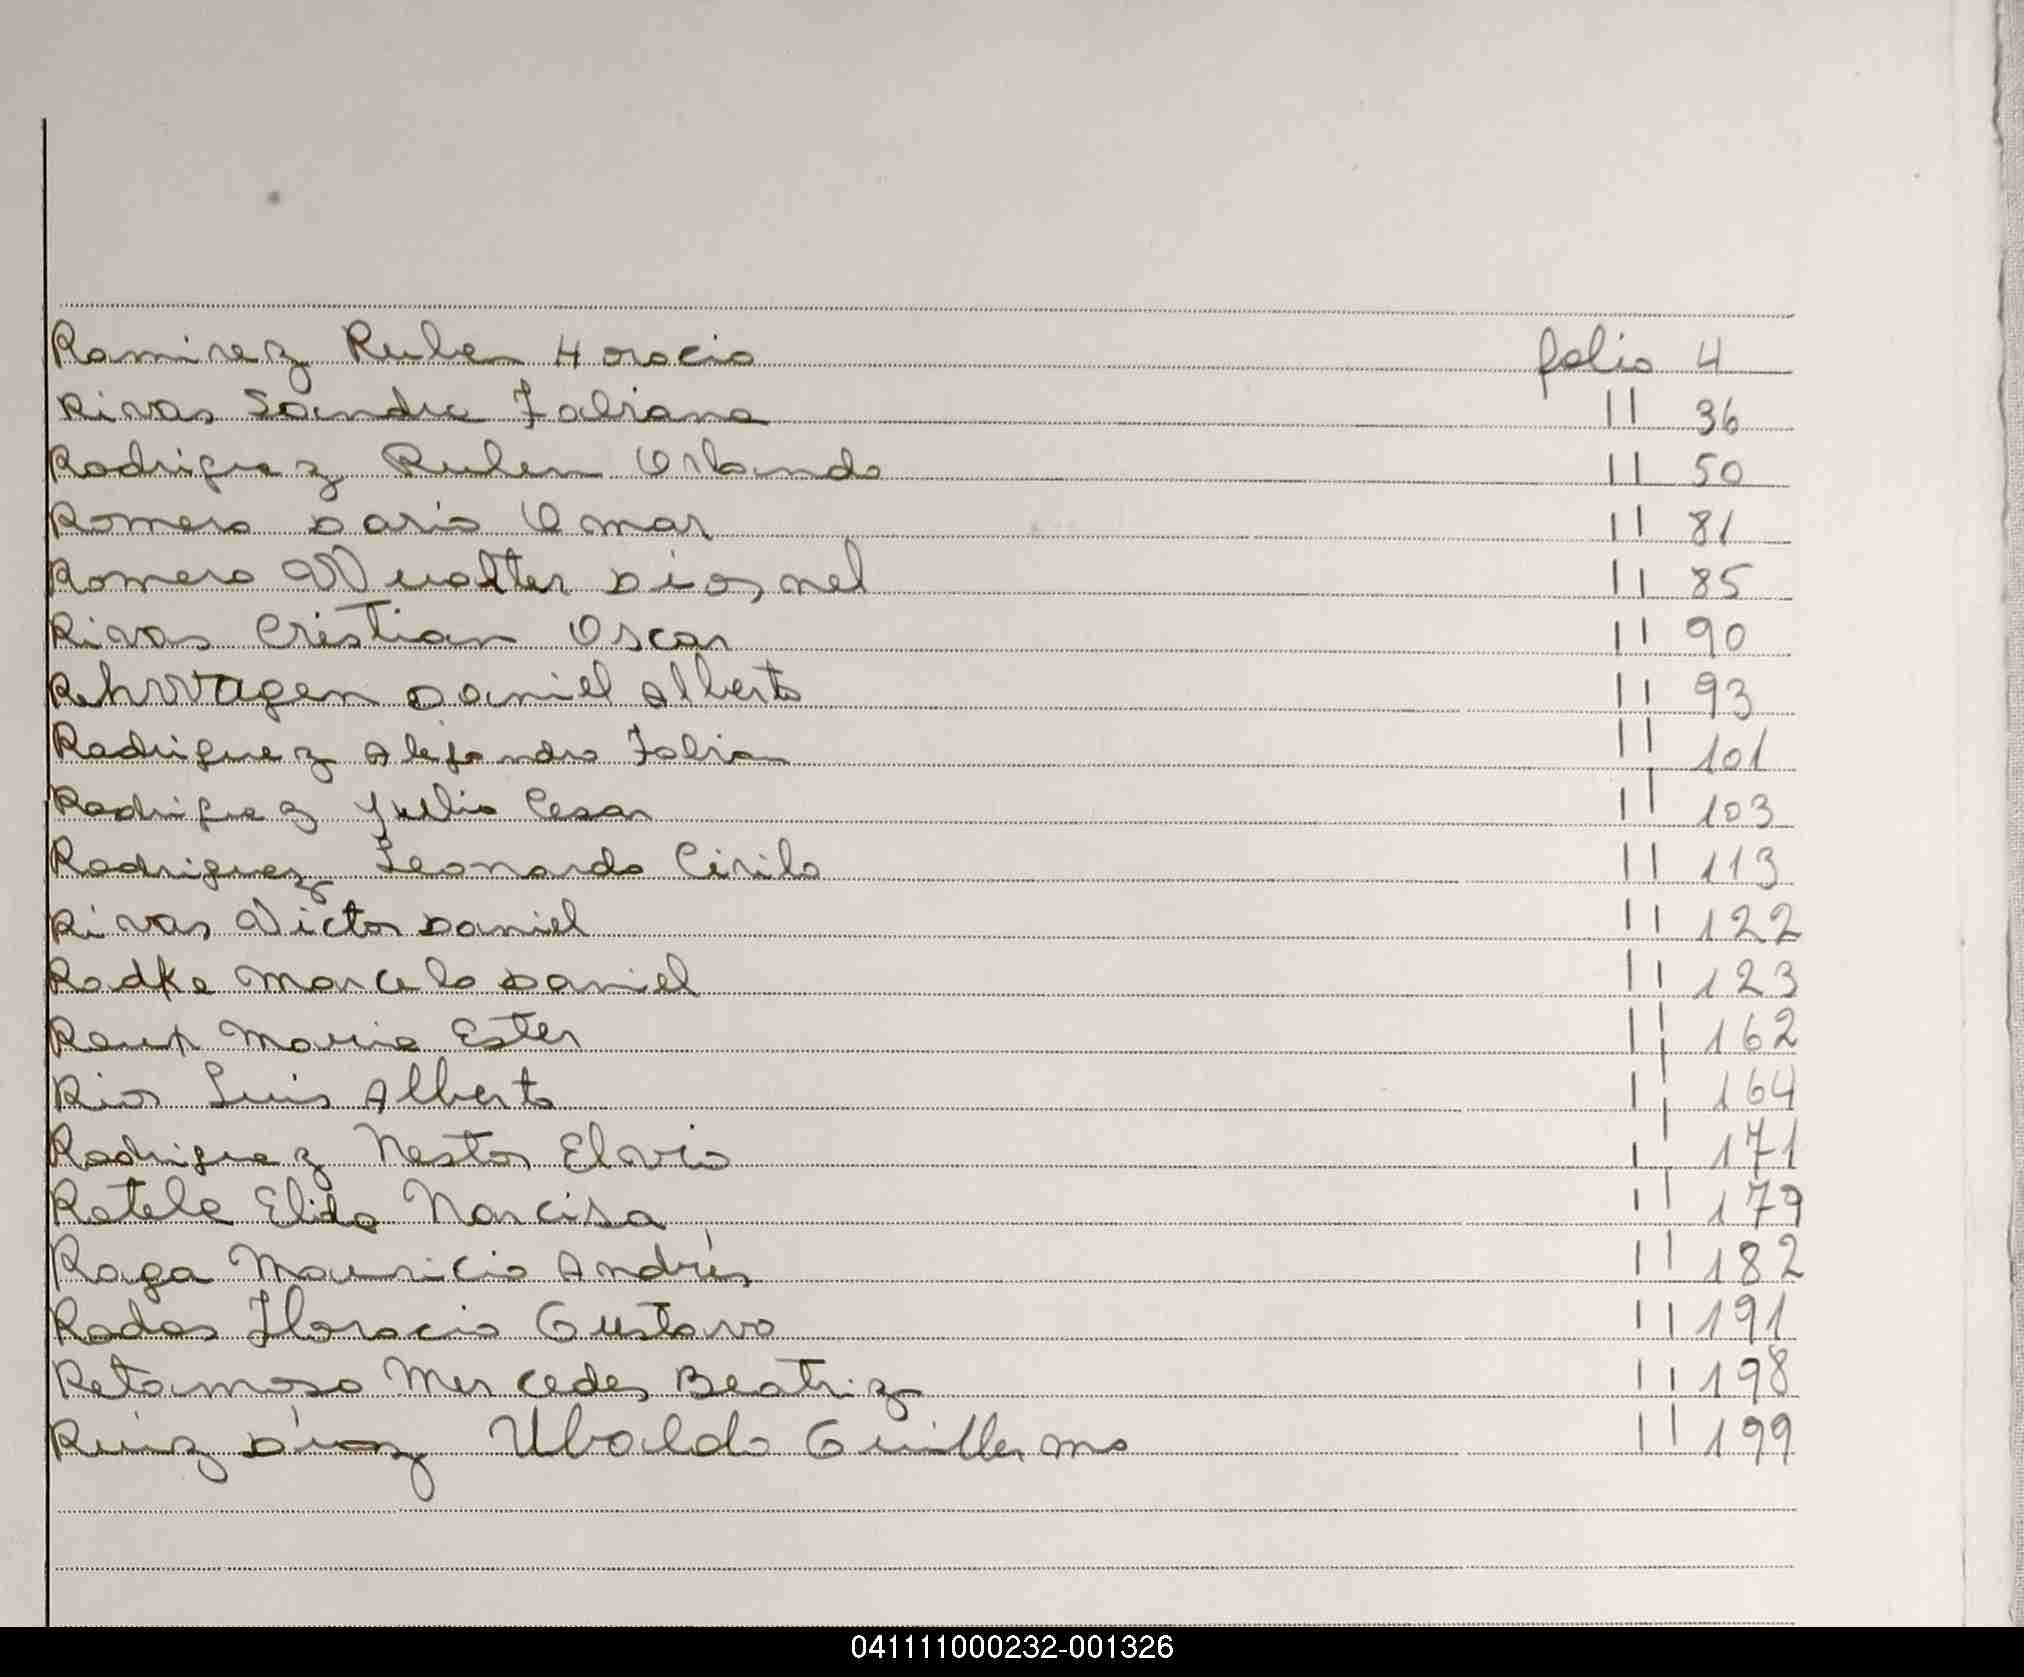 Ramirez Ruben Horacio folio 4
Rivas Sandra Fabiana " 36
Rodriguez Ruben Orlando " 50
Romero Dario Omar " 81
Romero Wualter Diosnel " 85
Rivas Cristian Oscar " 90
Rehwagen Daniel Alberto " 93
Rodriguez Alejandro Fabian " 101
Rodriguez Julio Cesar " 103
Rodriguez Leonardo Cirilo " 113
Rivas Victor Daniel " 122
Radke Marcelo Daniel " 123
Maria Ester " 162
Rios Luis Alberto " 164
Rodriguez Nestor Elvio " 171
Elida Narcisa " 179
Raga Mauricio Andrés " 182
Rodas Horacio Gustavo " 191
Retamoso Mercedes Beatriz " 198
Ruiz Díaz Ubaldo Guillermo " 199
041111000232-001326